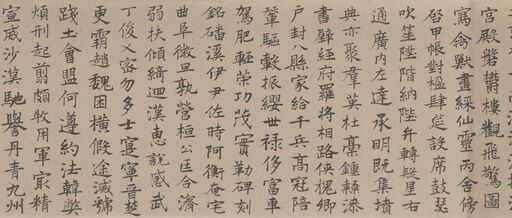 宮殿盤欝樓觀飛驚圖
寫禽獸畫綵仙靈丙舍傍
啓甲帳對楹肆筵設席鼓瑟
吹笙陞階納陛弁轉疑星右
通廣内左達承明既集墳
典亦聚羣英杜稾鍾隸漆
書壁經府羅將相路俠槐卿
户封八縣家給千兵高冠陪
輦驅轂振纓世禄侈富車
駕肥輕策功茂實勒碑刻
銘磻溪伊尹佐時阿衡奄宅
曲阜微旦孰營桓公匡合濟
弱扶傾綺迴漢惠說感武
丁俊乂密勿多士寔寧晉楚
更霸趙魏困横假途滅虢
踐土會盟何遵約法韓弊
煩刑起翦頗牧用軍冣精
宣威沙漠馳譽丹青九州